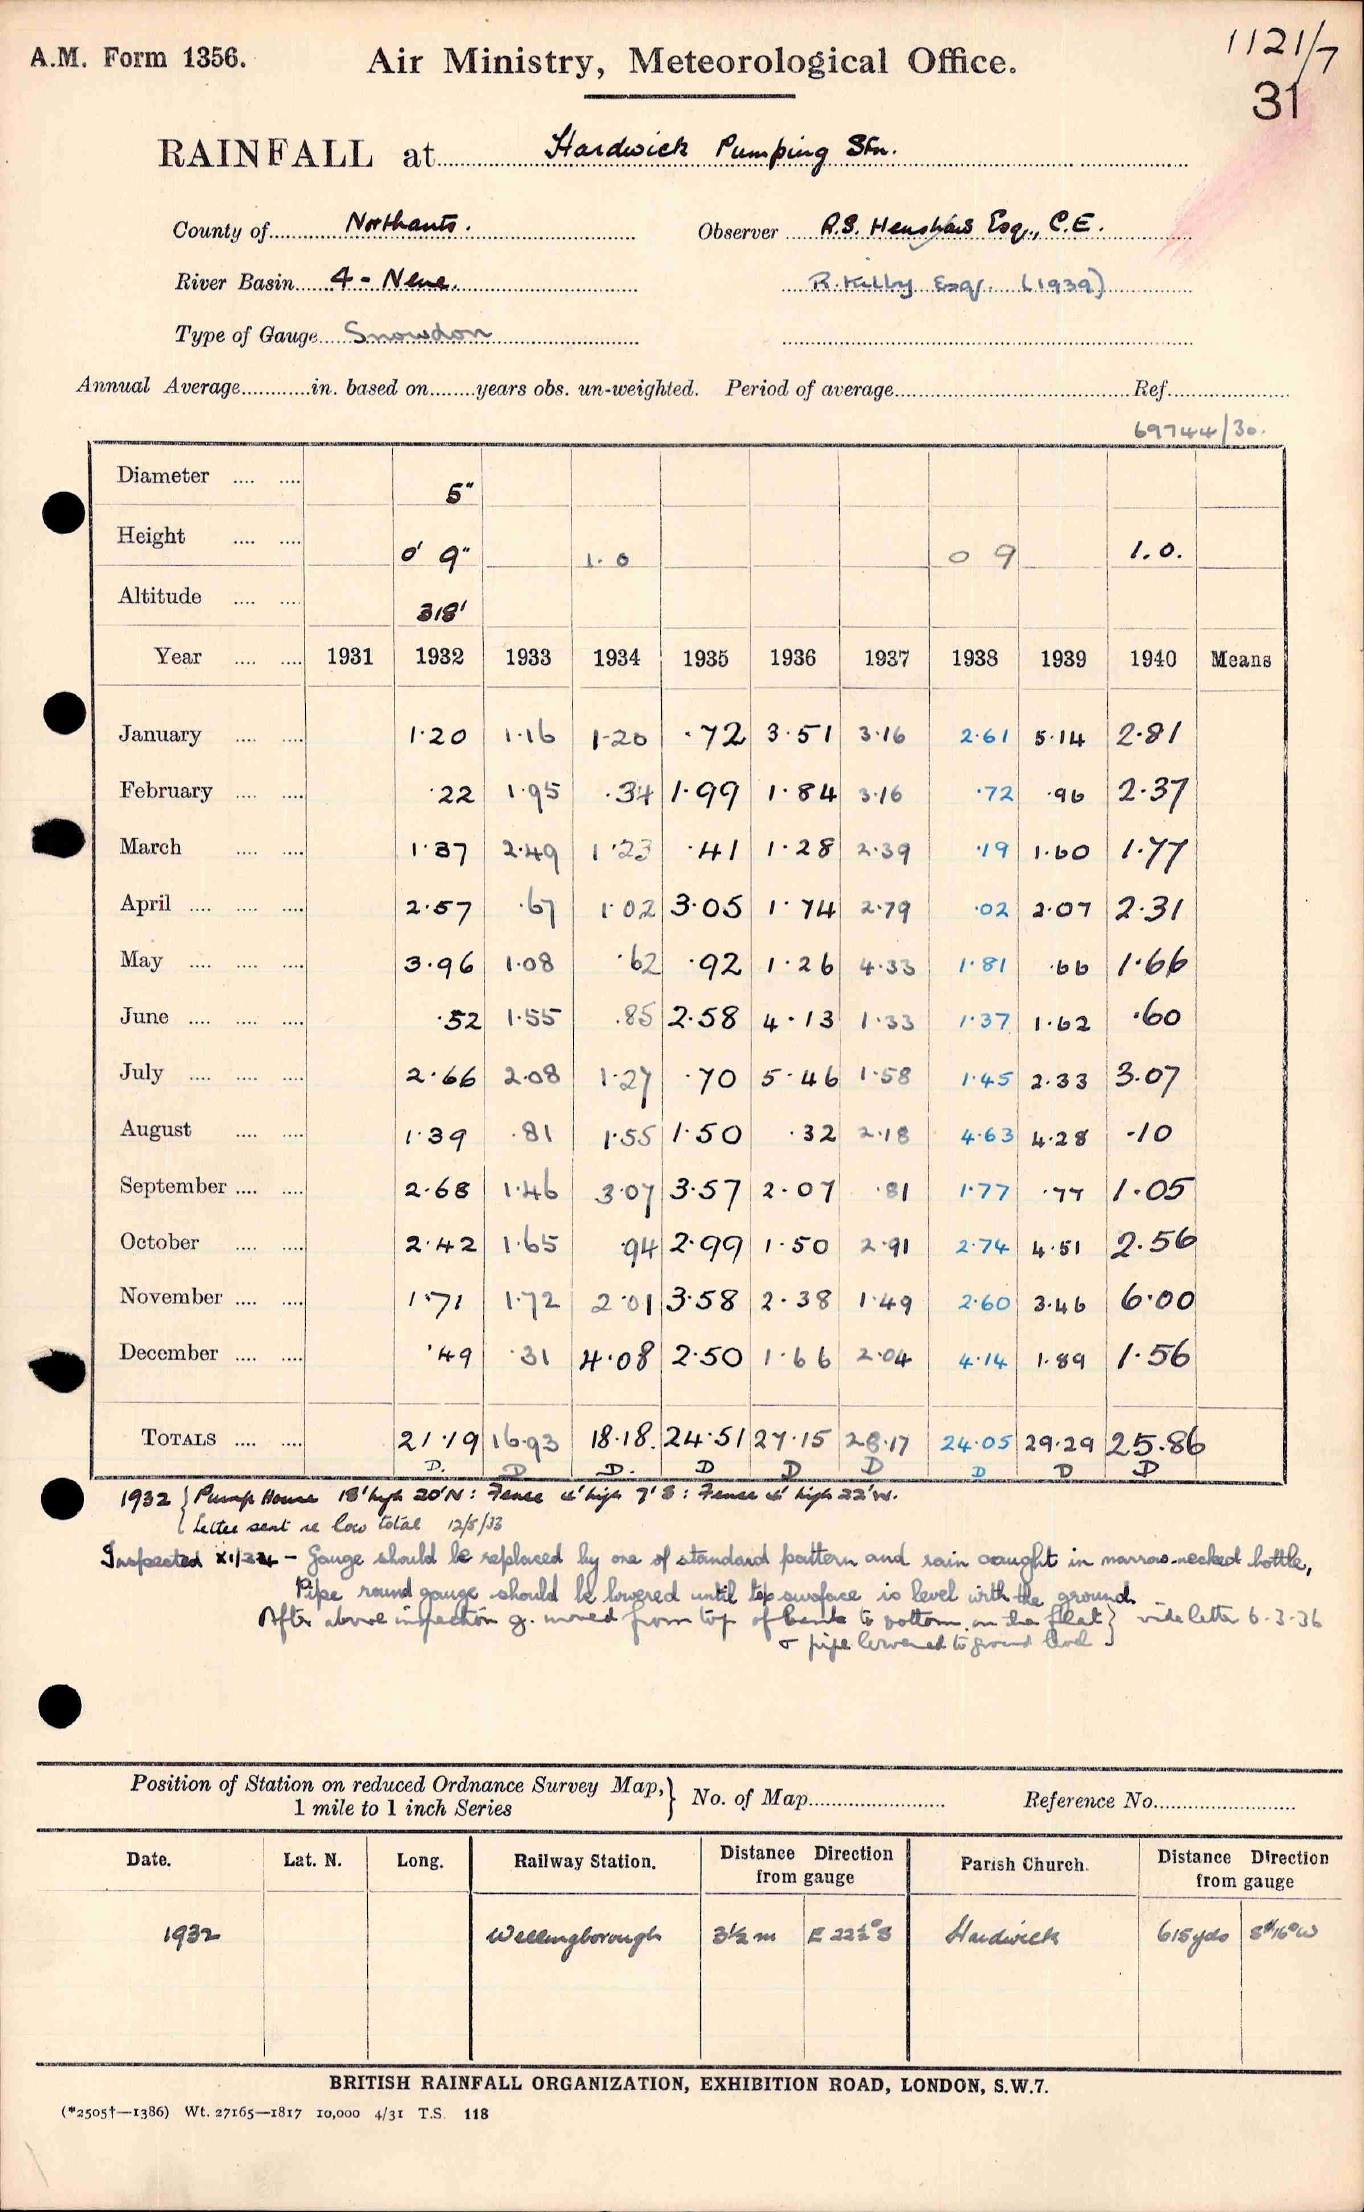 A.M. Form 1356. Air Ministry, Meteorological Office. 1121/7
31
RAINFALL at Hardwick Pumping Stn.
County of Northants. Observer R.S. Henshaw Esq., C.E.
River Basin 4 - Nene. R. Kilby Esq. (1939)
Type of Gauge Snowdon
Annual Average in. based on years obs. un-weighted. Period of average Ref.
69744/30.
Diameter 5"
Height 0' 9" 1.0 0 9 1.0.
Altitude 318'
Year 1931 1932 1933 1934 1935 1936 1937 1938 1939 1940 Means
January 1.20 1.16 1.20 .72 3.51 3.16 2.61 5.14 2.81
February .22 1.95 .34 1.99 1.84 3.16 .72 .96 2.37
March 1.37 2.49 1.23 .41 1.28 2.39 .19 1.60 1.77
April 2.57 .67 1.02 3.05 1.74 2.79 .02 2.07 2.31
May 3.96 1.08 .62 .92 1.26 4.33 1.81 .66 1.66
June .52 1.55 .85 2.58 4.13 1.33 1.37 1.62 .60
July 2.66 2.08 1.27 .70 5.46 1.58 1.45 2.33 3.07
August 1.39 .81 1.55 1.50 .32 2.18 4.63 4.28 .10
September 2.68 1.46 3.07 3.57 2.07 .81 1.77 .77 1.05
October 2.42 1.65 .94 2.99 1.50 2.91 2.74 4.51 2.56
November 1.71 1.72 2.01 3.58 2.38 1.49 2.60 3.46 6.00
December .49 .31 4.08 2.50 1.66 2.04 4.14 1.89 1.56
TOTALS 21.19 16.93 18.18. 24.51 27.15 28.17 24.05 29.29 25.86
D. D D. D D D D D D
1932 { Pump House 18' high 20' N : Fence 4' high 7' S : Fence 4' high 22' W.
{ Letter sent re low total 12/5/33
Inspected XI/34 - Gauge should be replaced by one of standard pattern and rain caught in narrow-necked bottle,
Pipe round gauge should be lowered until top surface is level with the ground
After above inspection g. moved from top of bank to bottom on the flat } vide letter 6.3.36
& pipe lowered to ground level }
Position of Station on reduced Ordnance Survey Map, } No. of Map Reference No.
1 mile to 1 inch Series
Date. Lat. N. Long. Railway Station. Distance Direction from gauge Parish Church. Distance Direction from gauge
1932 Wellingborough 3½ m E 22½° S Hardwick 615 yds
BRITISH RAINFALL ORGANIZATION, EXHIBITION ROAD, LONDON, S.W.7.
(*2505†—1386) Wt. 27165—1817 10,000 4/31 T.S. 118